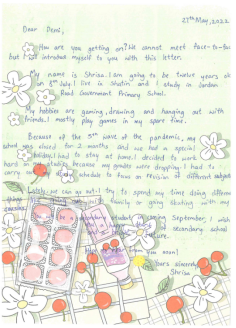 27th May, 2022
Dear Dens,
How are you getting on? We cannot meet face-to-fa
but I introduce myself to you with this letter.
My name is Shrisa. I am going to be twelve years ol
on 8th July. I live in Shatin and I study in Jordan
Road Government Primary School.
My hobbies are gaming, drawing and hanging out with
friends. I mostly play games in my spare time.
Because of the 5th wave of the pandemic, my
school was closed for 2 months and we had a special
holiday. I had to stay at home. I decided to work
hard on my studies because my grades were dropping. I had to
carry schedule to focus on revision of different subje
Lately, we can go out. I try to spend my time doing differen
things family or going skating with my
be a secondary student coming September. I wish
secondary school
you soon!
Yours sincerely,
Shrisa